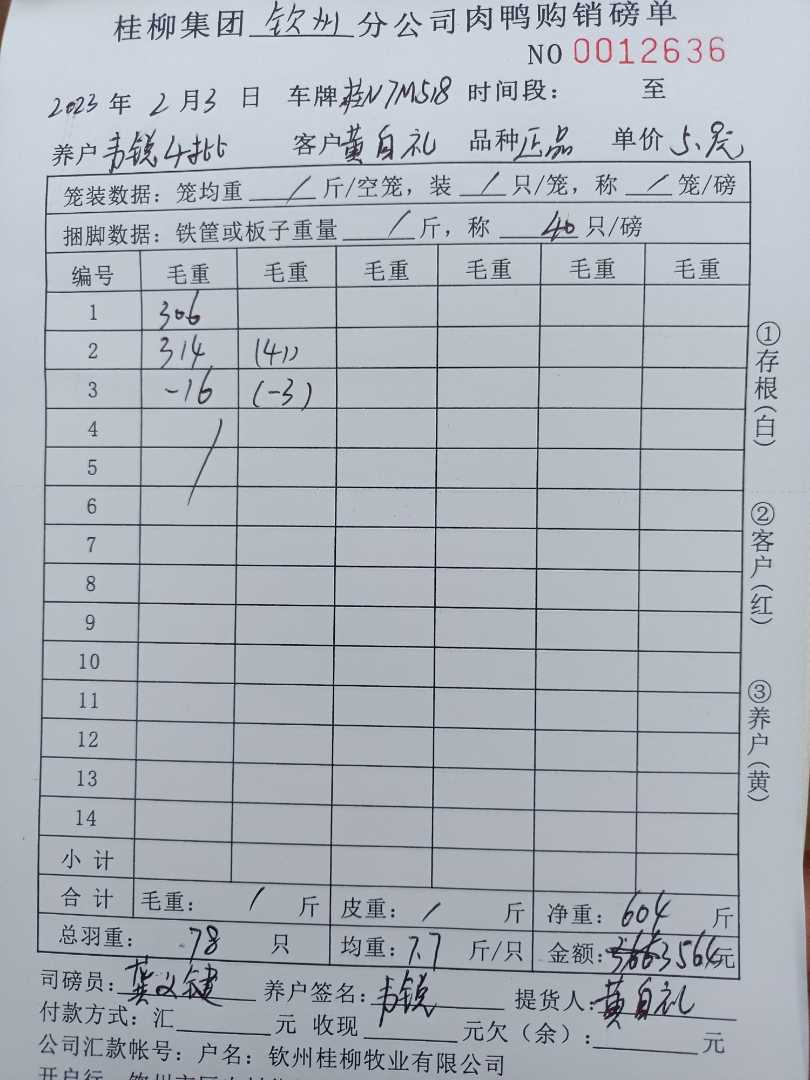 桂柳集团 钦州 分公司肉鸭购销磅单
NO 0012636
2023 年 2 月 3 日 车牌 桂N7M518 时间段： 至
养户 韦锐4批 客户 黄自礼 品种 正品 单价 5.9元
笼装数据：笼均重 / 斤/空笼，装 / 只/笼，称 / 笼/磅
捆脚数据：铁筐或板子重量 / 斤，称 40 只/磅
编号 毛重 毛重 毛重 毛重 毛重 毛重
1 306
2 314 (41)
3 -16 (-3)
4
5
6
7
8
9
10
11
12
13
14
小 计
合 计 毛重： / 斤 皮重： / 斤 净重： 604 斤
总羽重： 78 只 均重： 7.7 斤/只 金额： 3564元
司磅员： 龚文健 养户签名： 韦锐 提货人： 黄自礼
付款方式：汇 元 收现 元欠（余）： 元
公司汇款帐号：户名：钦州桂柳牧业有限公司
开户行
①存根(白)
②客户(红)
③养户(黄)